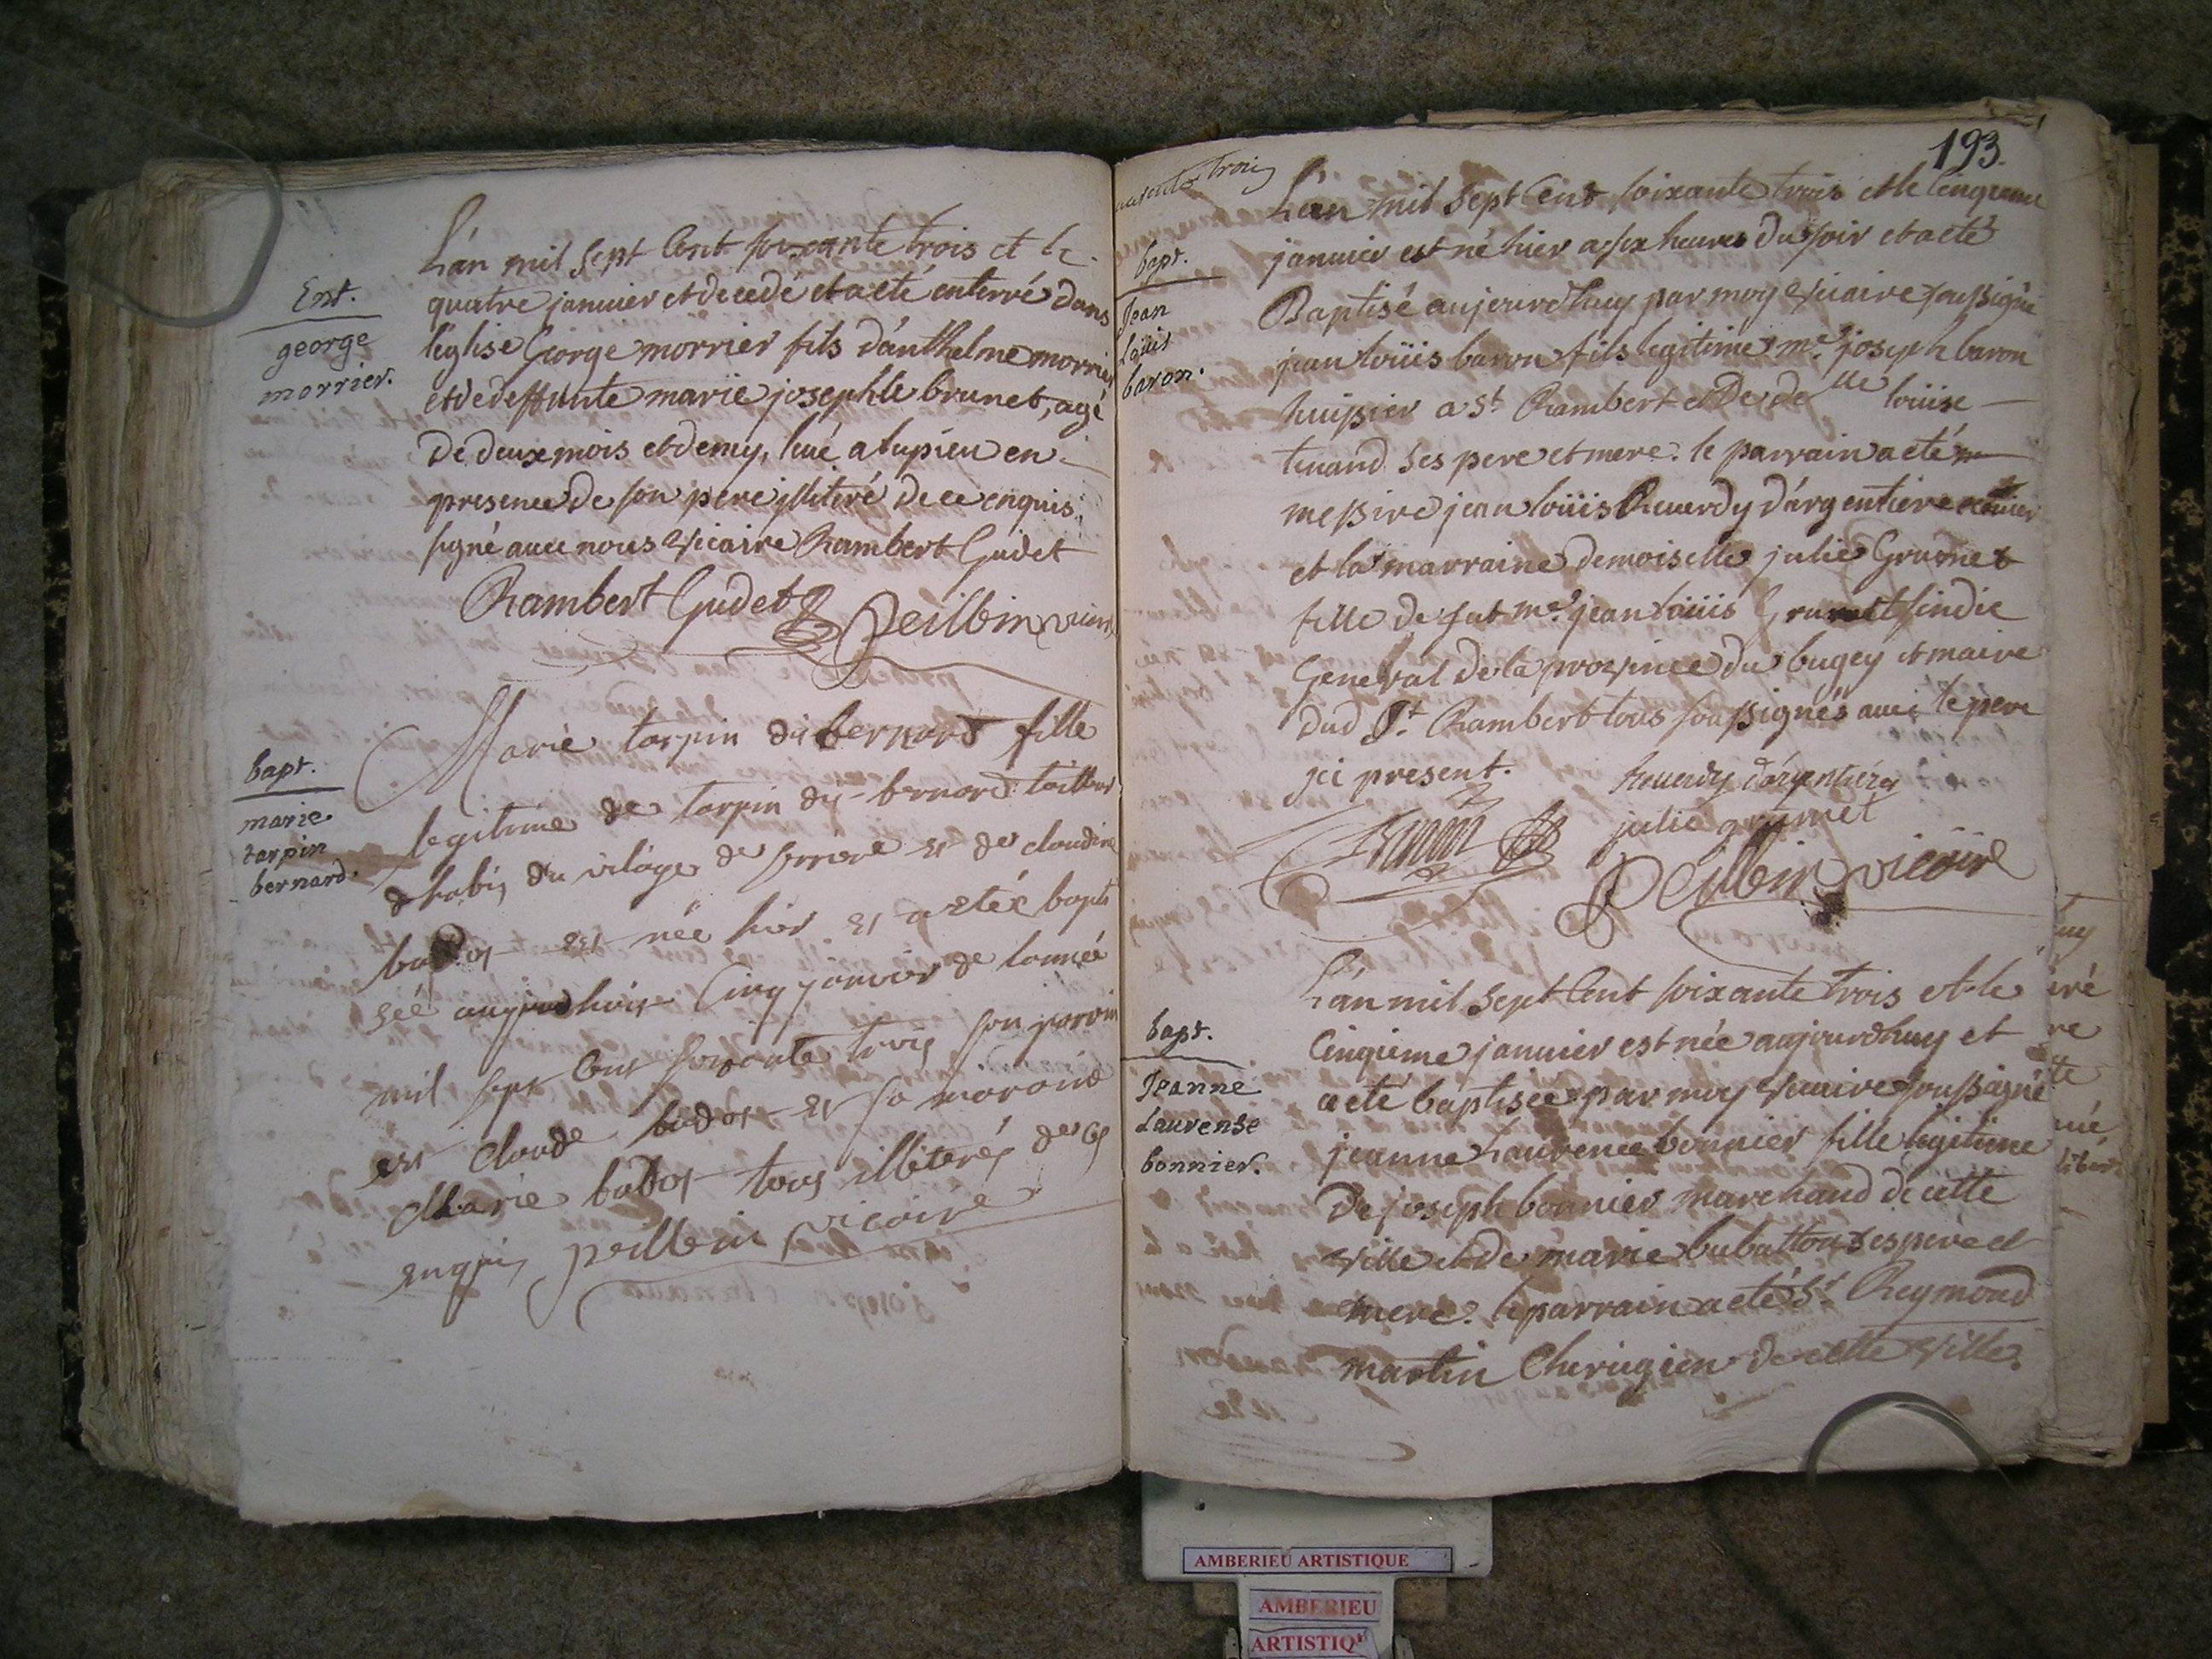 L'an mil sept Cent soixante trois et le
Ent.
george
morrier.
quatre janvier et decedé et a eté enterré dans
l'eglise George morrier fils d'anthelme morrier
et de deffunte marie josephte brunet, agé
De deux mois et demy, en
presence de son pere illiteré de ce enquis
signé avec nous vicaire Rambert Gudet
Rambert Gudet Peilbin vicaire
bapt.
marie
tarpin
bernard.
Marie tarpin dit bernard fille
legitime de tarpin dit bernard tailleur
d habis du vilage de serriere et de claudine
bador est née hier et a etée bapti
sée aujourdhuis Cinq janvier de lannée
mil sept Cent soixante trois son parain
est Claude bador et sa maraine
Marie bador tous illiterés de ce
enquis peilbin vicaire
193.
soixante trois
bapt.
Jean
Loüis
baron.
L'an mil sept Cent soixante trois et le cinquieme
janvier est né hier a six heures du soir et a eté
Baptisé aujourdhuy par moy vicaire soussigné
jean loüis baron fils legitime me. joseph baron
huissier a St. Rambert et De de lle loüise
tenand ses pere et mere. le parrain a eté
messire jean loüis Reverdy d'argentiere
et la marraine demoiselle julie Grumet
fille de fut me. jean loüis Grumet sindic
General de la province du bugey et maire
dud St. Rambert tous soussignés avec le pere
ici present. Reverdy d'argentiere
julie grumet
Peilbin vicaire
bapt.
Jeanne
Laurense
bonnier.
L'an mil sept Cent soixante trois et le
Cinquieme janvier est née aujourdhuy et
a eté baptisée par moy vicaire soussigné
jeanne Laurence bonnier fille legitime
De joseph bonnier marchand de cette
ville et de marie bubatton ses pere et
mere. le parrain a eté Sr. Reymond
martin Chirugien de cette ville.
AMBERIEU ARTISTIQUE
AMBERIEU
ARTISTIQ